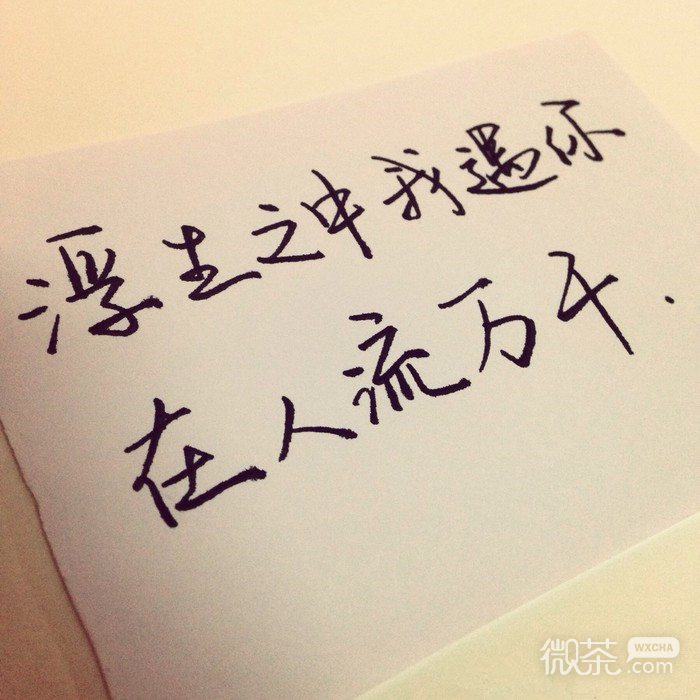 浮生之中我遇你
在人流万千.
微茶 WXCHA
.com